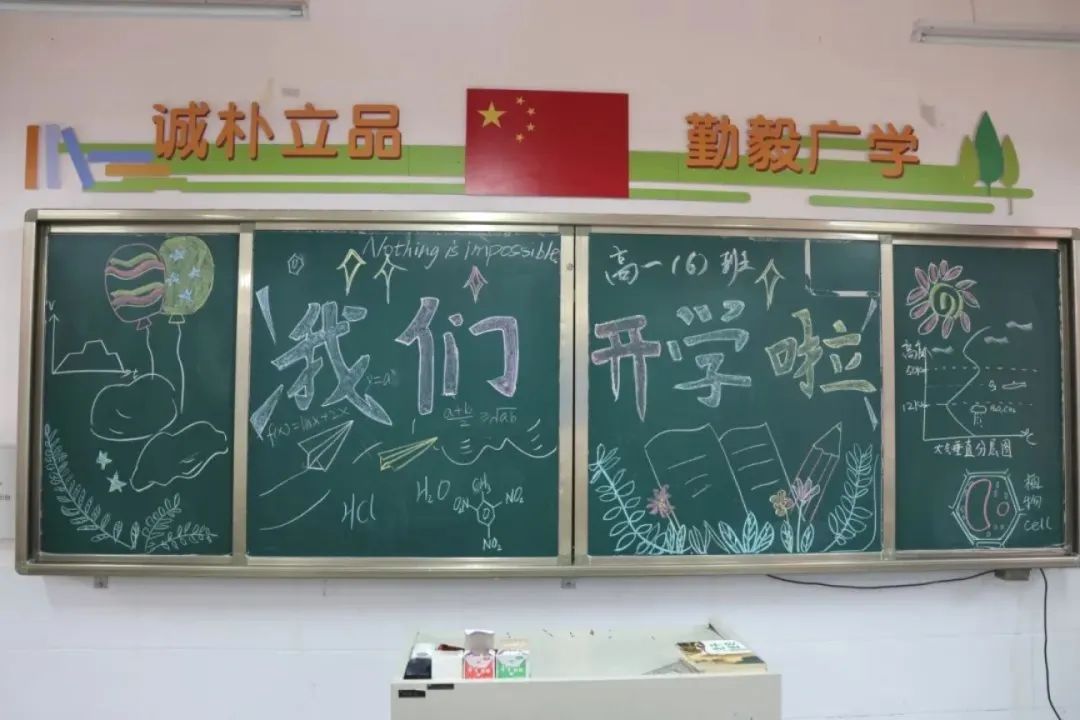 诚朴立品
勤毅广学
Nothing is impossible
高一(6)班
我们
开学啦
v
t
y=aˣ
f(x)=lnx+2x
a+b/2≥√ab
HCl
H₂O
CH₃
O₂N
NO₂
NO₂
高度
12k
℃
大气垂直分层图
植物
cell